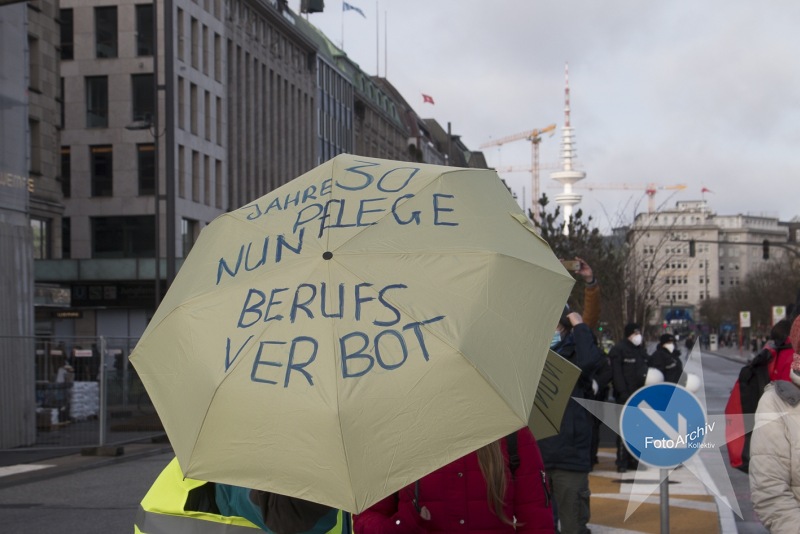 30
JAHRE
PFLEGE
NUN
BERUFS
VERBOT
NUM
FotoArchiv
Kollektiv